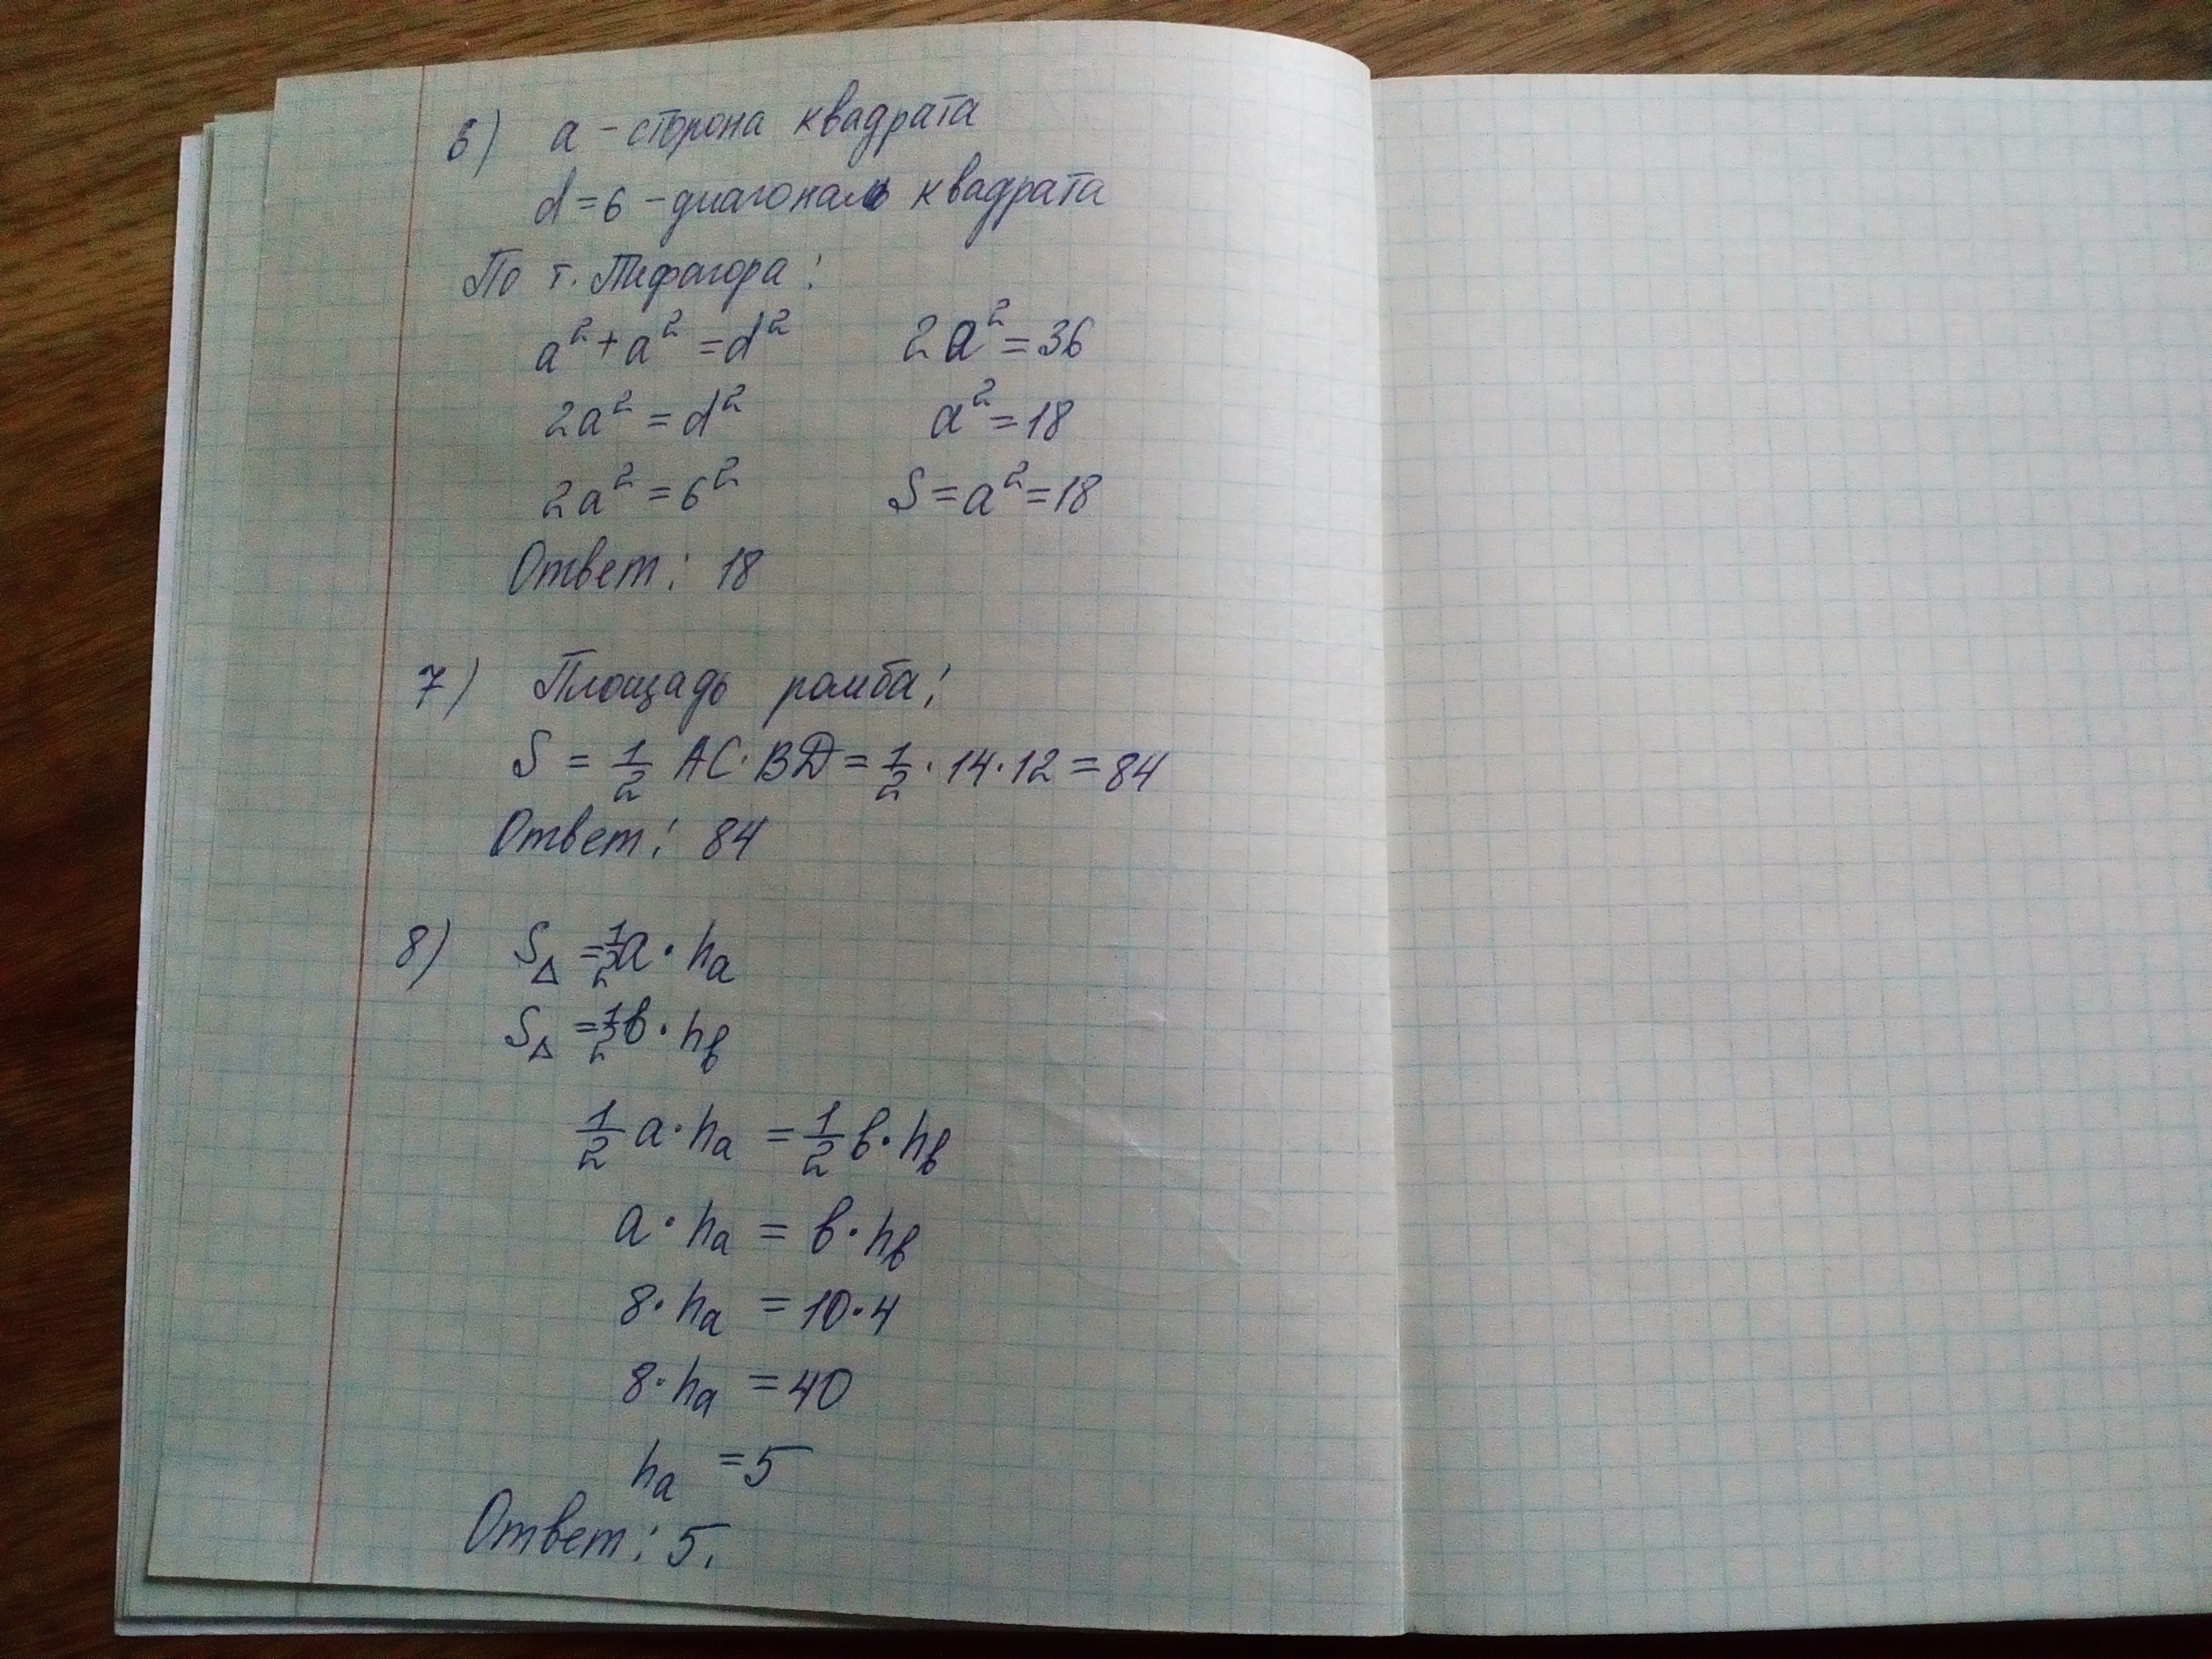 6) a - сторона квадрата
d = 6 - диагональ квадрата
По т. Пифагора:
a² + a² = d²
2a² = d²
2a² = 6²
2a² = 36
a² = 18
S = a² = 18
Ответ: 18
7) Площадь ромба:
S = 1/2 AC · BD = 1/2 · 14 · 12 = 84
Ответ: 84
8) S△ = 1/2 a · hₐ
S△ = 1/2 в · h_в
1/2 a · hₐ = 1/2 в · h_в
a · hₐ = в · h_в
8 · hₐ = 10 · 4
8 · hₐ = 40
hₐ = 5
Ответ: 5.